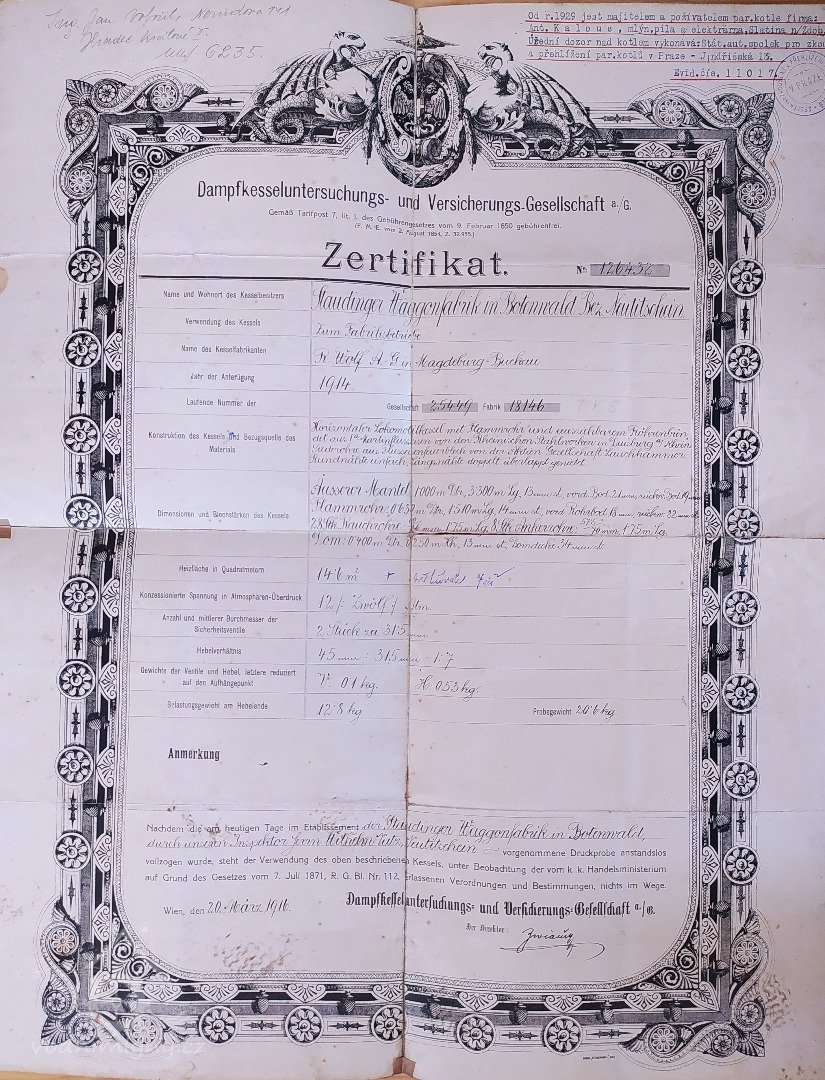 Ing. Jan
Hradec
6235.
Od r.1929 jest majitelem a poživatelem par.kotle firma:
Ant. Kalous, mlýn, pila a elektrárna, Slatina n/Zdob.
Úřední dozor nad kotlem vykonává: Stát.aut.spolek pro zkou
a přehlížení par.kotlů v Praze - Jindřišská 13.
Evid.čís. 11017.
Dampfkesseluntersuchungs- und Versicherungs-Gesellschaft a./G.
Gemäß Tarifpost 7, lit. i, des Gebührengesetzes vom 9. Februar 1850 gebührenfrei.
(F. M. E. vom 2. August 1851, Z. 32.995.)
Zertifikat.
Nr. 126432
Name und Wohnort des Kesselbesitzers Staudinger Waggonfabrik in Botenwald Bez. Neutitschein
Verwendung des Kessels Zum Fabriksbetriebe
Name des Kesselfabrikanten R. Wolf A. G. in Magdeburg-Buckau
Jahr der Anfertigung 1914
Laufende Nummer der Gesellschaft 25449 Fabrik 18146
Konstruktion des Kessels und Bezugsquelle des Materials
Horizontaler Lokomobilkessel mit Flammrohr und ausziehbarem Röhrenbün
del aus von den Rheinischen Stahlwerken in Duisburg a/Rhein
von der Aktien Gesellschaft Lauchhammer
Rundnähte einfach, Längsnähte doppelt überlappt genietet.
Dimensionen und Blechstärken des Kessels
Äusserer Mantel 1000 m Dtr, 3300 m Lg, 13 mm st, vord. Bod.
Flammrohr: 0.650 m Dtr, 1510 m Lg, 14 mm st, vord. Rohrbod. 18 mm, 22 mm st
28 Stk Rauchrohre 1.75 m Lg. 8 Stk Ankerrohre 70 mm, 1.75 m Lg.
Dom: 0.400 m Dtr. 0.250 m Hh, 13 mm st, Domdecke 34 mm st
Heizfläche in Quadratmetern 14.6 m²
Konzessionierte Spannung in Atmosphären-Überdruck 12 / Zwölf / Atm.
Anzahl und mittlerer Durchmesser der Sicherheitsventile 2 Stück zu 31.5 mm
Hebelverhältnis 45 mm : 315 mm = 1:7
Gewichte der Ventile und Hebel, letztere reduziert auf den Aufhängepunkt V. 0.1 kg. H. 0.53 kg.
Belastungsgewicht am Hebelende 12.8 kg. Probegewicht 20.6 kg.
Anmerkung
Nachdem die am heutigen Tage im Etablissement der Staudinger Waggonfabrik in Botenwald,
durch unseren Inspektor Herrn Neutitschein vorgenommene Druckprobe anstandslos
vollzogen wurde, steht der Verwendung des oben beschriebenen Kessels, unter Beobachtung der vom k. k. Handelsministerium
auf Grund des Gesetzes vom 7. Juli 1871, R. G. Bl. Nr. 112, erlassenen Verordnungen und Bestimmungen, nichts im Wege.
Wien, den 20. März 1916
Dampfkesseluntersuchungs- und Versicherungs-Gesellschaft a./G.
Der Direktor: